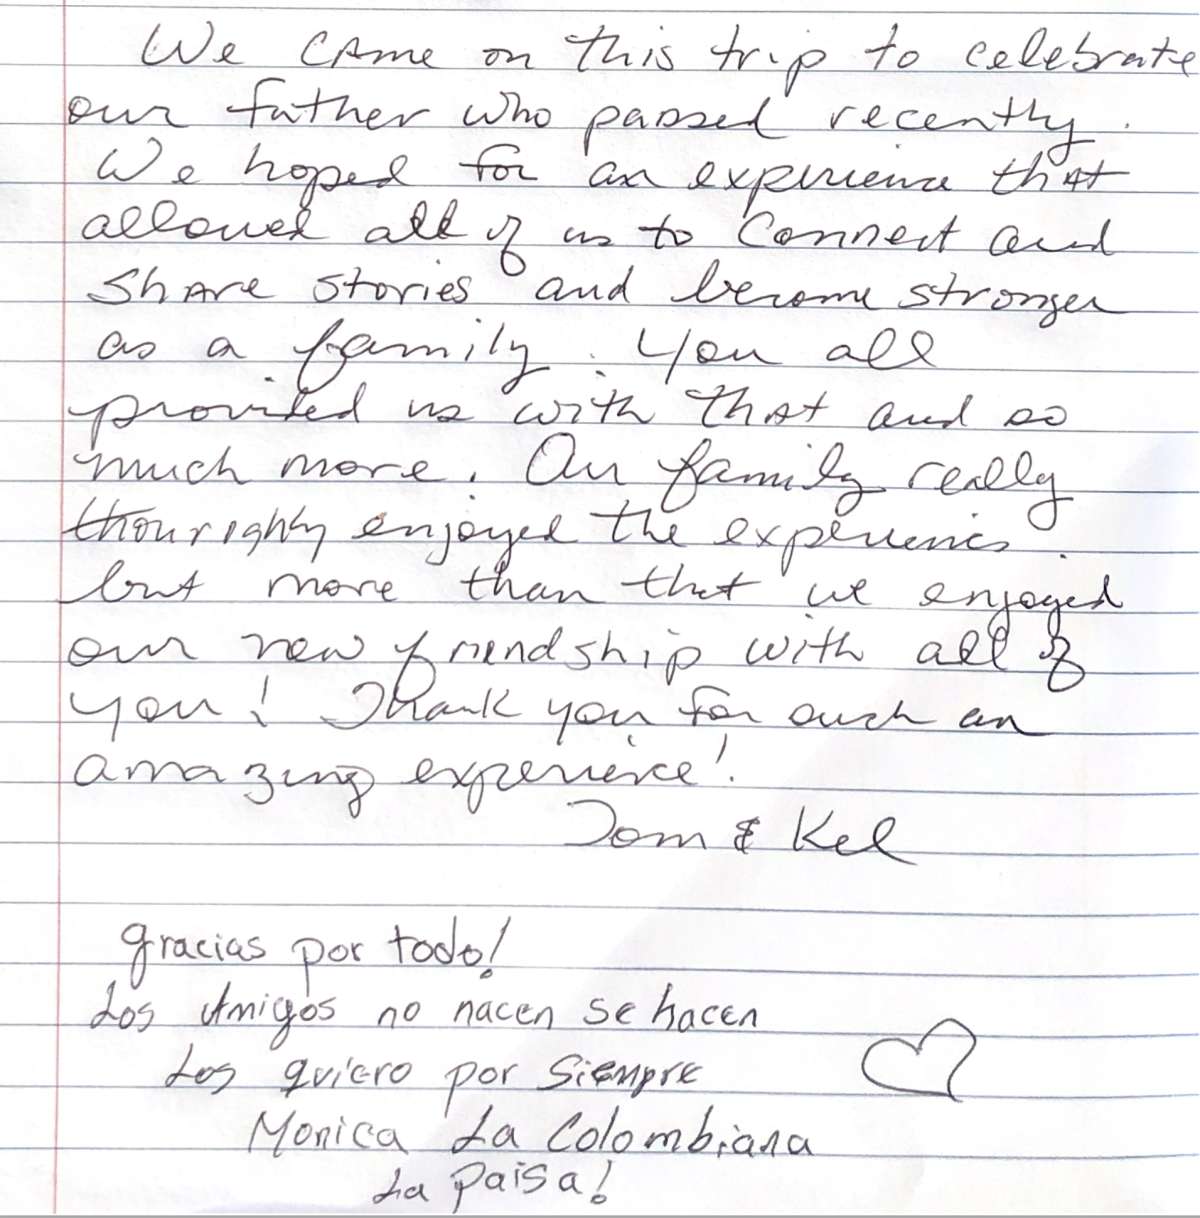 We came on this trip to celebrate
our father who passed recently.
We hoped for an experience that
allowed all of us to connect and
share stories and become stronger
as a family. You all
provided us with that and so
much more. Our family really
thourighly enjoyed the experience.
but more than that we enjoyed
our new friendship with all of
you! Thank you for such an
amazing experience!
Tom & Kel
gracias por todo!
Los Amigos no nacen se hacen
Los quiero por siempre
Monica La Colombiana
La paisa!